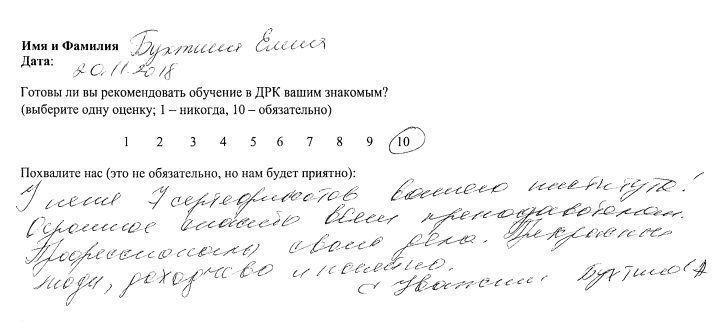 Имя и Фамилия Бухтина Елена
Дата: 20.11.2018
Готовы ли вы рекомендовать обучение в ДРК вашим знакомым?
(выберите одну оценку; 1 – никогда, 10 – обязательно)
1 2 3 4 5 6 7 8 9 10
Похвалите нас (это не обязательно, но нам будет приятно):
У меня 7 сертификатов вашего института!
Огромное спасибо всем преподавателям.
Профессионалы своего дела. Прекрасные
люди, доходчиво и понятно.
С уважением Бухтина